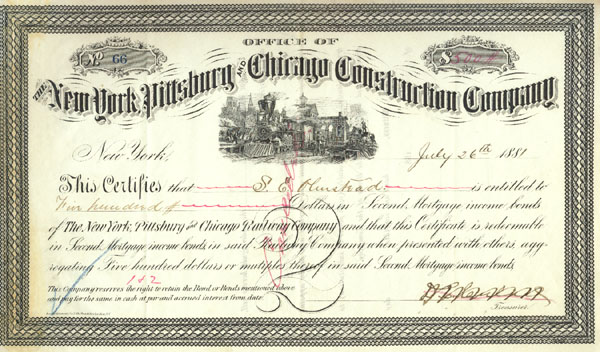 OFFICE OF
No 66
$
THE New York, Pittsburg AND Chicago Construction Company
New York, July 26th 1881
This Certifies that S. E. Olmstead is entitled to
hundred Dollars in Second Mortgage income bonds
of The New York, Pittsburg and Chicago Railway Company and that this Certificate is redeemable
in Second Mortgage income bonds, in said Railway Company when presented with others, agg-
regating Five hundred dollars or multiples thereof in said Second Mortgage income bonds.
1 & 2
This Company reserves the right to retain the Bond or Bonds mentioned above
and pay for the same in cash at par and accrued interest from date
2
Treasurer